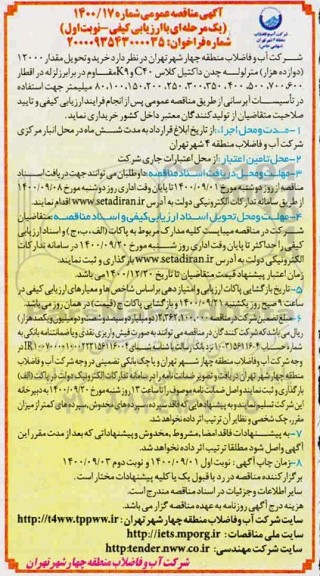 آگهی مناقصه عمومی شماره ۱۴۰۰/۱۷
(یک مرحله‌ای با ارزیابی کیفی-نوبت اول)
شماره فراخوان: ۲۰۰۰۰۹۳۵۴۳۰۰۰۰۳۵
شرکت آب و فاضلاب منطقه چهار شهر تهران در نظر دارد خرید و تحویل مقدار ۱۲۰۰۰
(دوازده هزار) متر لوله چدن داکتیل کلاس C۴۰ و K۹ مقاوم در برابر زلزله در اقطار
۸۰،۱۰۰،۱۵۰،۲۰۰،۲۵۰،۳۰۰،۳۵۰،۴۰۰،۵۰۰،۶۰۰،۷۰۰ میلیمتر جهت استفاده
در تأسیسات آبرسانی از طریق مناقصه عمومی پس از انجام فرایند ارزیابی کیفی و تایید
صلاحیت متقاضیان از تولید کنندگان معتبر داخل کشور خریداری نماید.
۱-مدت و محل اجرا: از تاریخ ابلاغ قرارداد به مدت شش ماه در محل انبار مرکزی
شرکت آب و فاضلاب منطقه ۴ شهر تهران
۲-محل تامین اعتبار: از محل اعتبارات جاری شرکت
۳-مهلت و محل دریافت اسناد مناقصه: داوطلبان می توانند جهت دریافت اسناد
مناقصه از روز دوشنبه مورخ ۱۴۰۰/۰۹/۰۱ تا پایان وقت اداری روز دوشنبه مورخ ۱۴۰۰/۰۹/۰۸
از طریق سامانه تدارکات الکترونیکی دولت به آدرس www.setadiran.ir اقدام نمایند.
۴-مهلت و محل تحویل اسناد ارزیابی کیفی و اسناد مناقصه: متقاضیان
شرکت در مناقصه میبایست کلیه مدارک مربوط به پاکات (الف، ب، ج) و اسناد ارزیابی
کیفی را حداکثر تا پایان وقت اداری روز شنبه مورخ ۱۴۰۰/۰۹/۲۰ در سامانه تدارکات
الکترونیکی دولت به آدرس www.setadiran.ir بارگذاری و ثبت نمایند.
زمان اعتبار پیشنهاد قیمت متقاضیان تا تاریخ ۱۴۰۰/۱۲/۲۰ می باشد.
۵-تاریخ بازگشایی پاکات ارزیابی و امتیازدهی بر اساس شاخص ها و معیارهای ارزیابی کیفی در
ساعت ۹ صبح روز یکشنبه ۱۴۰۰/۰۹/۲۱ و بازگشایی پاکات ج (قیمت) در همان روز می باشد.
۶-مبلغ تضمین شرکت در مناقصه
ریال می باشد که شرکت کنندگان در مناقصه می توانند به صورت فیش واریزی نقدی و یا ضمانتنامه بانکی به
وجه شرکت آب و فاضلاب منطقه چهار شهر تهران و یا چک بانکی تضمینی در وجه شرکت آب و فاضلاب
منطقه چهار شهر تهران دریافت و تصویر ضمانت نامه را در سامانه تدارکات الکترونیک دولت در پاکت (الف)
بارگذاری و ثبت نمایند و اصل ضمانت نامه موصوف را تا ساعت ۱۳ روز شنبه مورخ ۱۴۰۰/۰۹/۲۰ به دبیرخانه
این شرکت تسلیم نمایند و به پیشنهادهایی که فاقد سپرده، سپرده‌های مخدوش، سپرده‌های کمتر از میزان
مقرر، چک شخصی و نظایر آن ترتیب اثر داده نخواهد شد.
۷-به پیشنهادات فاقد امضا، مشروط، مخدوش و پیشنهاداتی که بعد از مدت مقرر این
آگهی واصل شود مطلقا ترتیب اثر داده نخواهد شد.
۸-زمان چاپ آگهی: نوبت اول ۱۴۰۰/۰۹/۰۱ و نوبت دوم ۱۴۰۰/۰۹/۰۳
برگزار کننده مناقصه در رد یا قبول یک یا کلیه پیشنهادات مختار است.
سایر اطلاعات و جزئیات در اسناد مناقصه مندرج است.
هزینه درج آگهی روزنامه به عهده مناقصه گزار می باشد.
سایت شرکت آب و فاضلاب منطقه چهار شهر تهران: http://t4ww.tppww.ir
سایت ملی مناقصات: http://iets.mporg.ir
سایت شرکت مهندسی: http:tender.nww.co.ir
شرکت آب و فاضلاب منطقه چهار شهر تهران